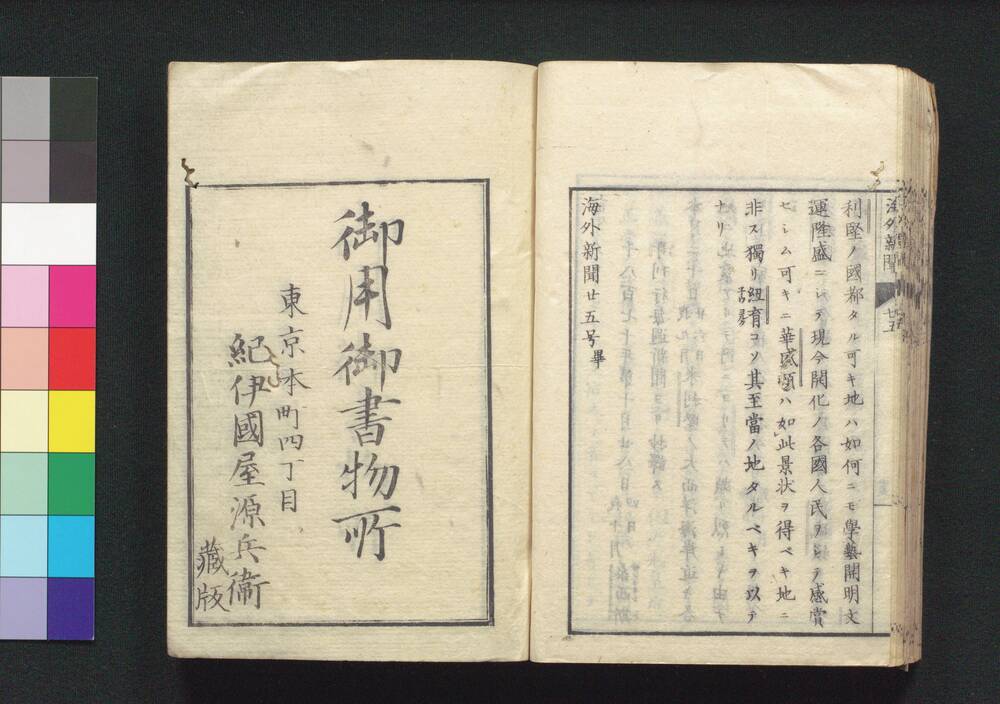 利堅ノ國都タル可キ地ハ如何ニモ學藝開明文
運隆盛ニシテ現今開化ノ各國人民ヲシテ感賞
セシム可キニ華盛頓ハ如此景状ヲ得ベキ地ニ
非ス獨リ紐育コソ其至當ノ地タルベキヲ以テ
ナリ
海外新聞廿五号畢
海外新聞
廿五
御用御書物所
東京本町四丁目
紀伊國屋源兵衞
藏版